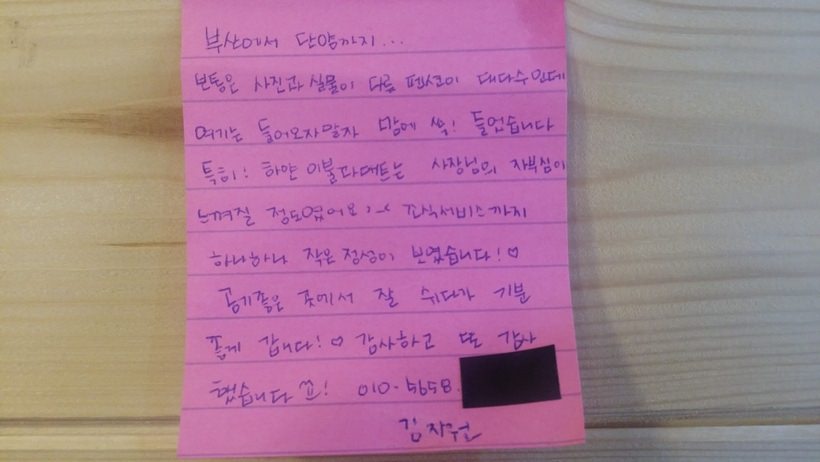 부산에서 단양까지...
보통은 사진과 실물이 다른 펜션이 대다수인데
여기는 들어오자말자 맘에 쏙! 들었습니다
특히! 하얀 이불과매트는 사장님의 자부심이
느껴질 정도였어요 ^-^ 조식서비스까지
하나하나 작은 정성이 보였습니다!♡
공기좋은 곳에서 잘 쉬다가 기분
좋게 갑니다!♡ 감사하고 또 감사
했습니다 꾀! 010-5658.
김자원